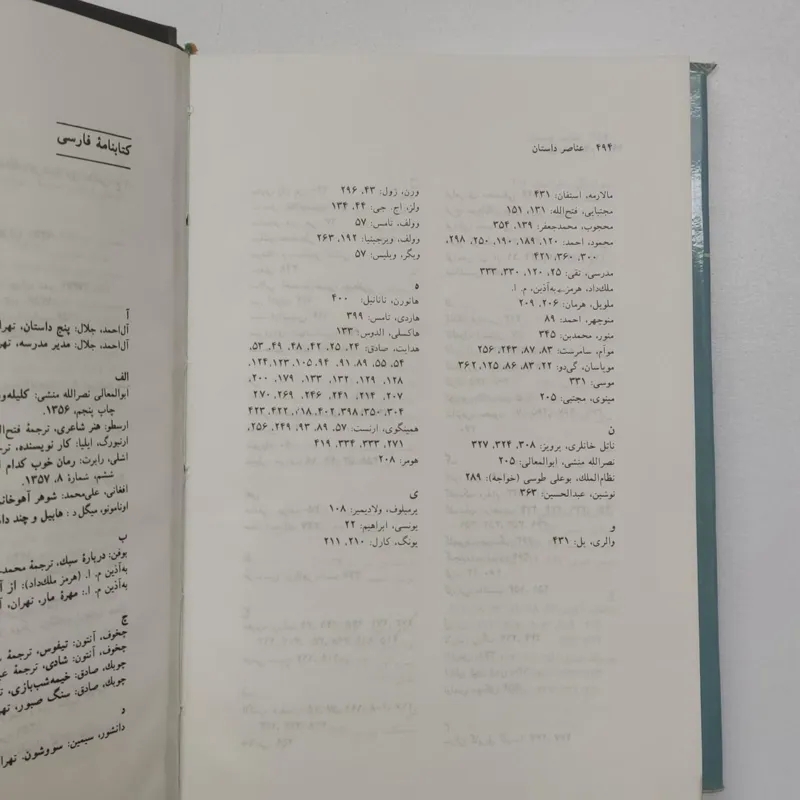 ۴۹۴ عناصر داستان
مالارمه، استفان: ۴۳۱
مجتبایی، فتح‌الله: ۱۳۱, ۱۵۱
محجوب، محمدجعفر: ۱۳۹, ۳۵۴
محمود، احمد: ۱۲۰, ۱۸۹, ۱۹۰, ۲۵۰, ۲۹۸,
۳۰۰, ۳۶۰, ۴۲۱
مدرسی، تقی: ۲۵, ۱۲۰, ۳۳۰, ۳۳۳
ملك‌داد، هرمز ← به‌آذین، م. ا.
ملویل، هرمان: ۲۰۶, ۲۰۹
منوچهر، احمد: ۸۹
منور، محمدبن: ۳۴۵
موآم، سامرست: ۸۳, ۸۷, ۲۴۳, ۲۵۶
موپاسان، گی‌دو: ۲۲, ۸۳, ۸۶, ۱۲۵, ۳۶۲
موسی: ۳۳۱
مینوی، مجتبی: ۲۰۵
ن
ناتل خانلری، پرویز: ۳۰۸, ۳۲۴, ۳۲۷
نصرالله منشی، ابوالمعالی: ۲۰۵
نظام‌الملك، بوعلی طوسی (خواجة): ۲۸۹
نوشین، عبدالحسین: ۳۶۳
و
والری، پل: ۴۳۱
ورن، ژول: ۴۳, ۲۹۶
ولز، اچ. جی: ۴۴, ۱۳۴
وولف، تامس: ۵۷
وولف، ویرجینیا: ۱۹۲, ۲۶۳
ویگر، ویلیس: ۵۷
ه
هاثورن، ناتانیل: ۴۰۰
هاردی، تامس: ۳۹۹
هاکسلی، الدوس: ۱۳۳
هدایت، صادق: ۲۴, ۲۵, ۴۲, ۴۸, ۴۹, ۵۳,
۵۴, ۵۵, ۸۹, ۹۱, ۹۴, ۱۰۵, ۱۲۳, ۱۲۴,
۱۲۸, ۱۲۹, ۱۳۲, ۱۳۳, ۱۷۹, ۲۰۰,
۲۰۷, ۲۱۴, ۲۴۱, ۲۴۶, ۲۶۹, ۲۷۰
۳۰۴, ۳۵۰, ۳۹۸, ۴۰۲, ۴۱۸, ۴۲۲, ۴۲۳
همینگوی، ارنست: ۵۷, ۸۹, ۹۳, ۲۴۹, ۲۵۶,
۲۷۱, ۳۳۳, ۳۳۴, ۴۱۹
هومر: ۲۰۸
ی
یرمیلوف، ولادیمیر: ۱۰۸
یونسی، ابراهیم: ۲۲
یونگ، کارل: ۲۱۰, ۲۱۱
کتابنامهٔ فارسی
آ
آل‌احمد، جلال: پنج داستان،
آل‌احمد، جلال: مدیر مدرسه،
الف
ابوالمعالی نصرالله منشی:
چاپ پنجم، ۱۳۵۶.
ارسطو: هنر شاعری، ترجمهٔ
ارنبورگ، ایلیا: کار نویسنده،
اشلی، رابرت: رمان خوب کدام
ششم، شمارهٔ ۸، ۱۳۵۷.
افغانی، علی‌محمد: شوهر
اونامونو، میگل‌د: هابیل و چند
ب
بوفن: دربارهٔ سبك، ترجمهٔ
به‌آذین م. ا. (هرمز ملك‌داد): از
به‌آذین م. ا.: مهرهٔ مار، تهران،
چ
چخوف، آنتون: تیفوس، ترجمهٔ
چخوف، آنتون: شادی، ترجمهٔ
چوبك، صادق: خیمه‌شب‌بازی،
چوبك، صادق: سنگ صبور،
د
دانشور، سیمین: سووشون،